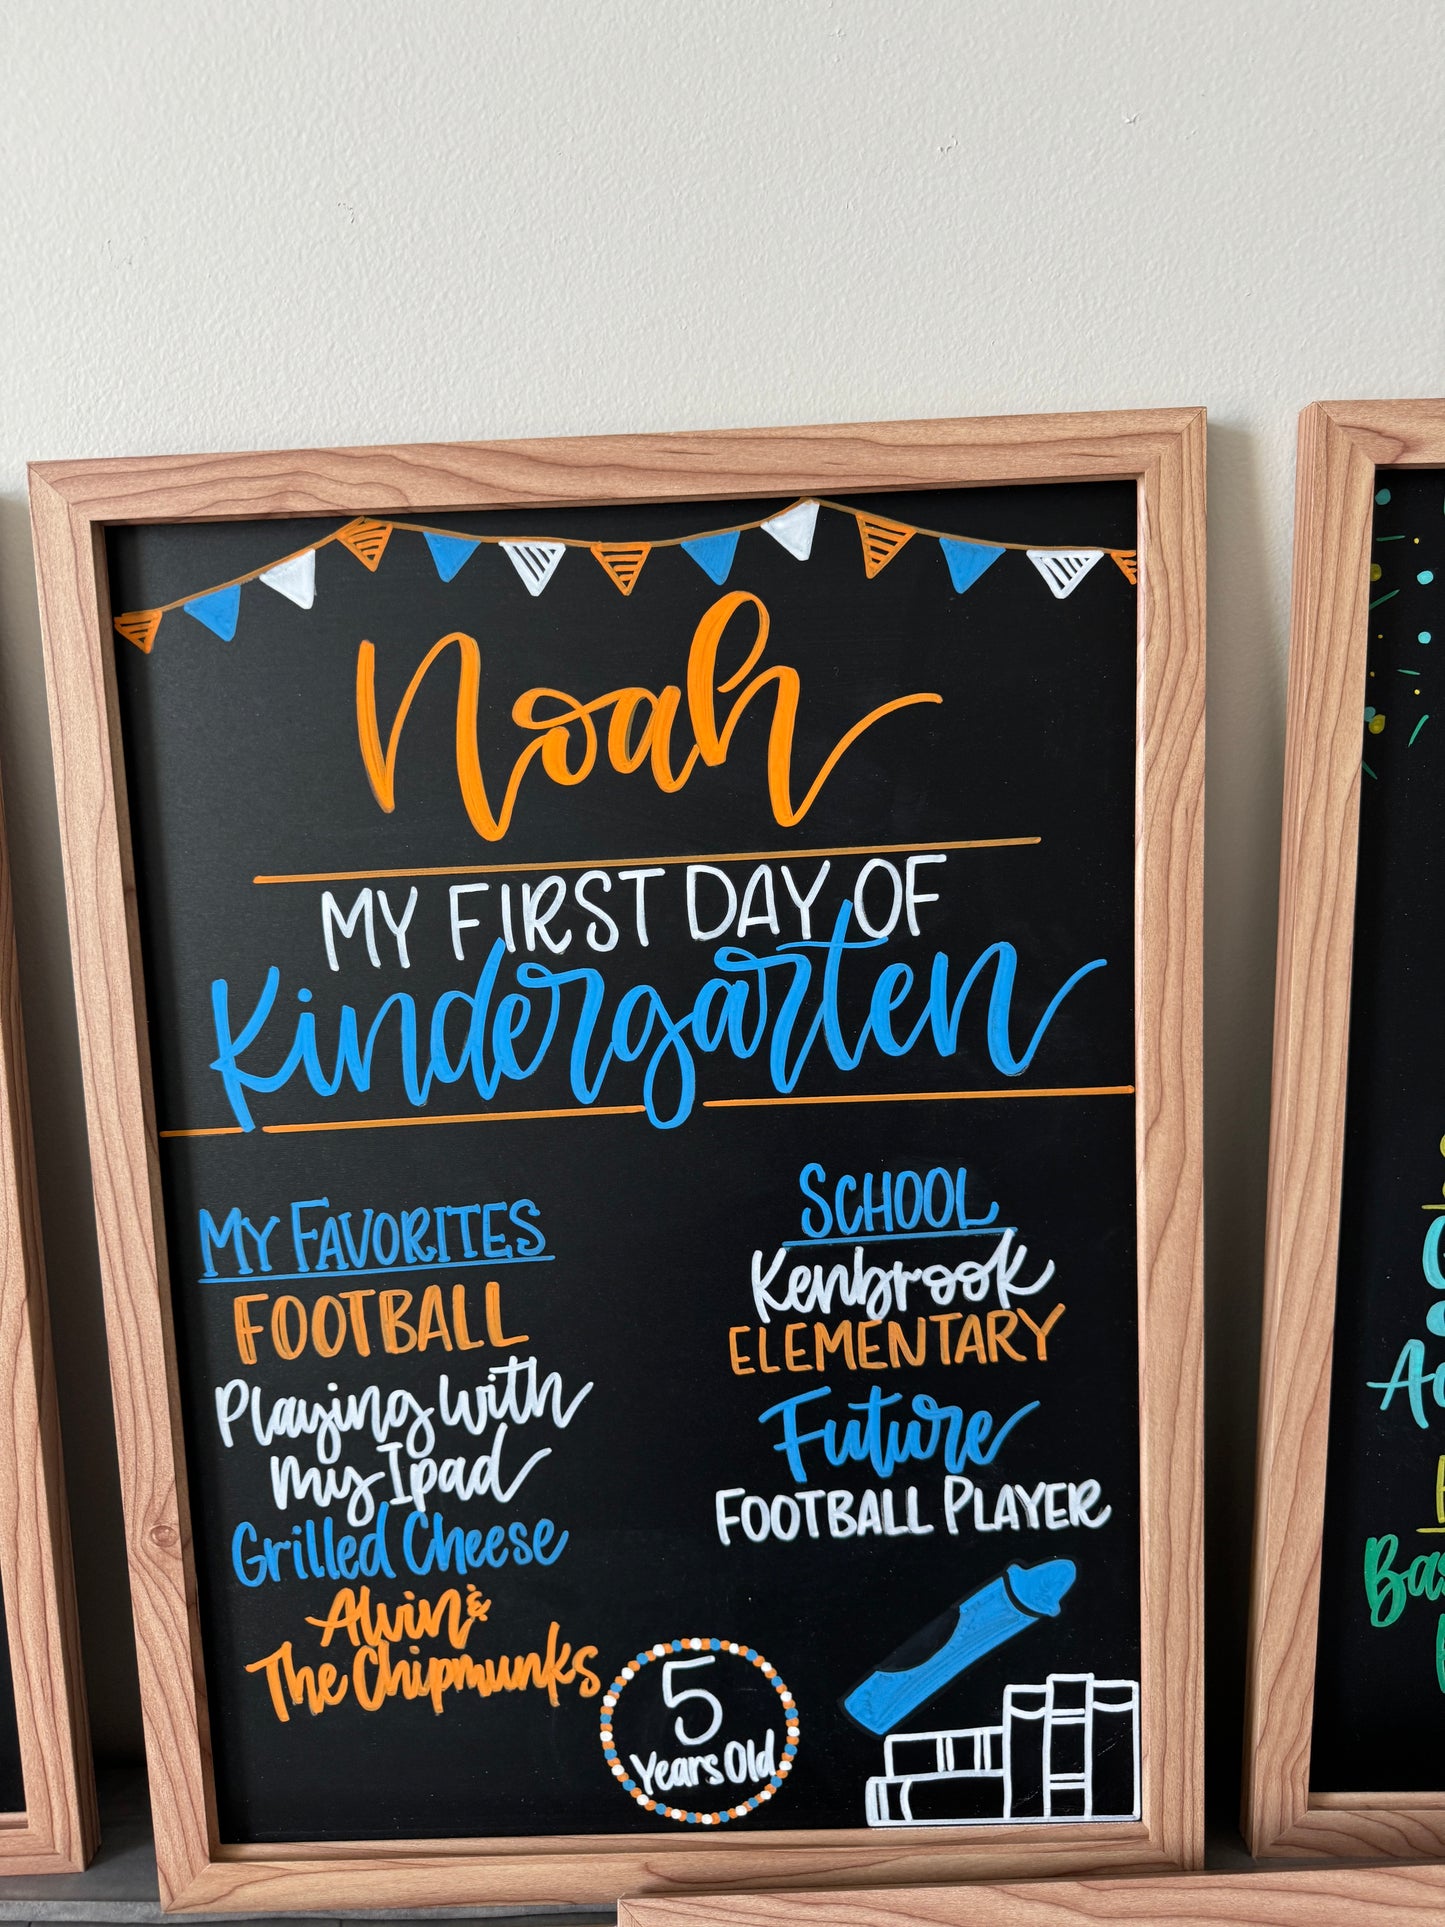 Noah
MY FIRST DAY OF
Kindergarten
MY FAVORITES
FOOTBALL
Playing with
my Ipad
Grilled Cheese
Alvin &
The Chipmunks
SCHOOL
Kenbrook
ELEMENTARY
Future
FOOTBALL PLAYER
5
Years Old